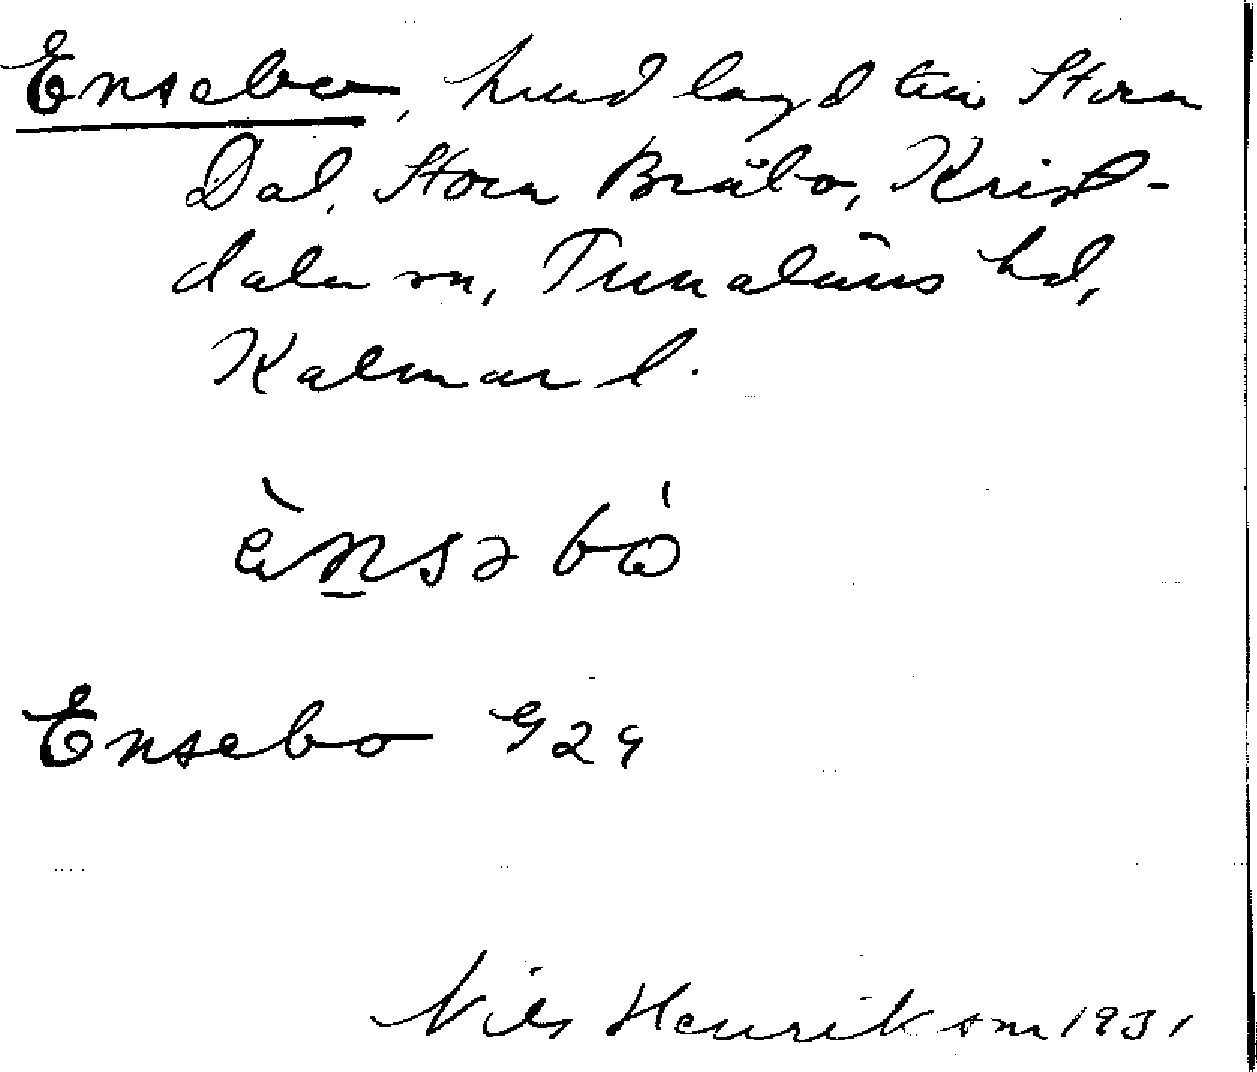 Ensebo, hmd lagd till Stora
Dal, Stora Bråbo, Krist-
dala sn, Tunaläns hd,
Kalmar l.
ènsəbò
Ensebo G 29
Nils Henrikson 1931